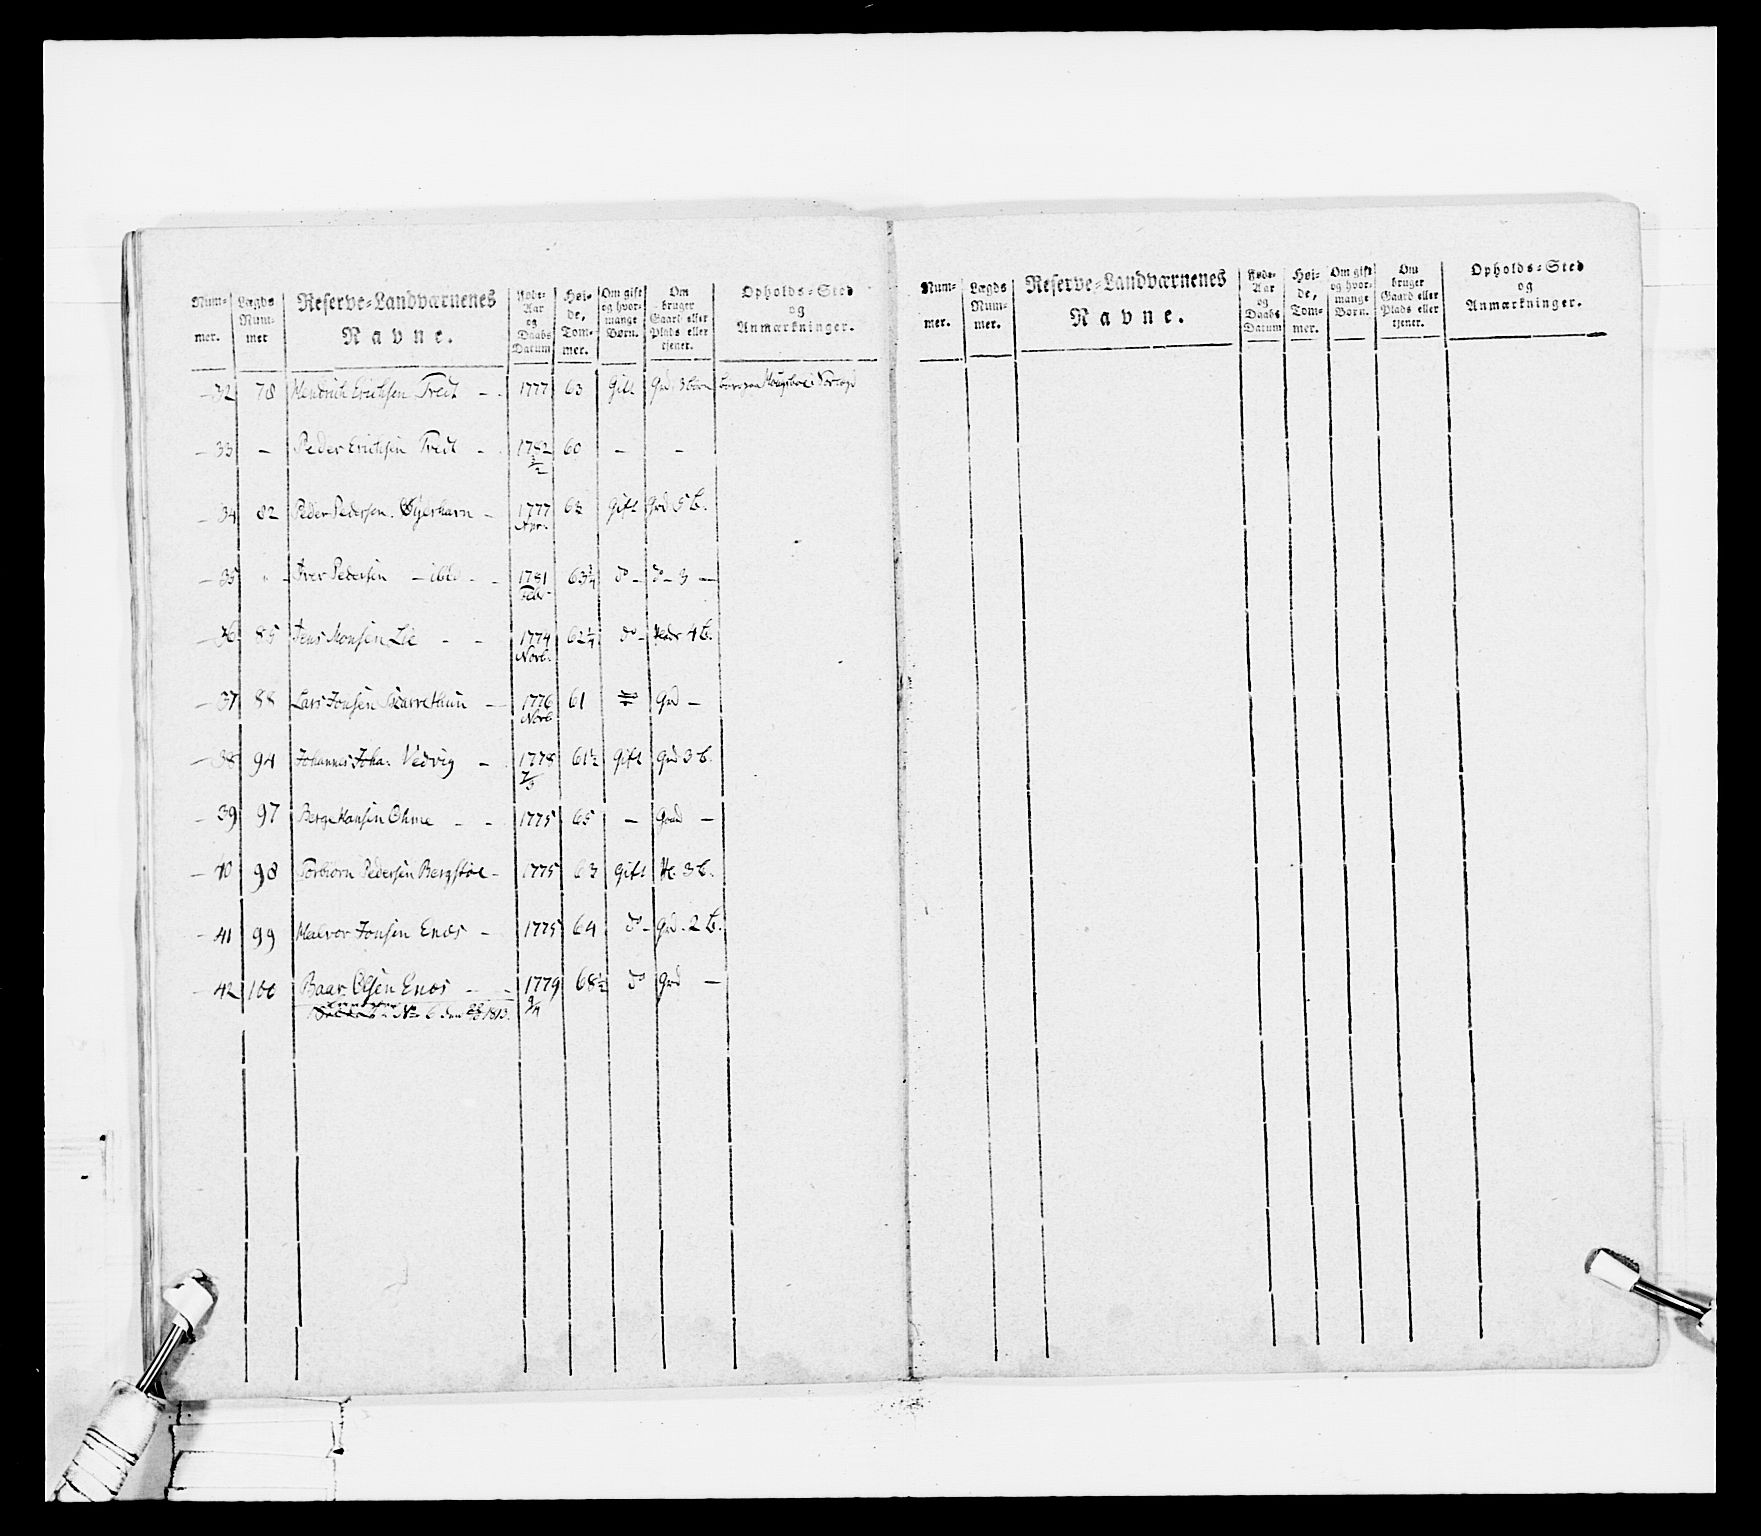 Num-
mer.
Lægds
Num-
mer
Reserve-Landværnenes
Navne.
Føde-
Aar
og
Daabs
Datum
Høi-
de,
Tom-
mer.
Om gift
og hvor-
mange
Børn.
Om
bruger
Gaard eller
Plads eller
tjener.
Opholds-Sted
og
Anmærkninger.
32 78 Hendrich Erichsen Tredt - - 1777 63 Gift Grd 3 børn
33 - Peder Erichsen Tredt - - 1782 60 - -
1/2
34 82 Peder Pedersen - 1777 Gift Grd 5 b.
35 " Iver Pedersen - ibid - - 1781 63 3/4 do - do - 3 -
Febr
36 85 Jens Monsen Lie - - 1774 62 1/4 do - 4 b.
Novb.
37 88 Lars Jonsen - 1776 61 Grd -
Novb
38 94 Johannes Joha: Vedvig - 1778 61 1/2 Gift Grd 3 b.
39 97 Børge Hansen Ohme - - 1775 65 - Grd -
40 98 Torbiørn Pedersen Bergstøe - 1775 63 gift 3 b.
41 99 Halvor Jonsen Enos - 1775 64 do - Grd - 2 b.
42 100 Baar Olsen Enos - - 1779 68 1/2 do Grd -
9/4
No 6 den 1813.
Num-
mer.
Lægds
Num-
mer.
Reserve-Landværnenes
Navne.
Føde-
Aar
og
Daabs
Datum
Høi-
de,
Tom-
mer.
Om gift
og hvor-
mange
Børn.
Om
bruger
Gaard eller
Plads eller
tjener.
Opholds-Sted
og
Anmærkninger.